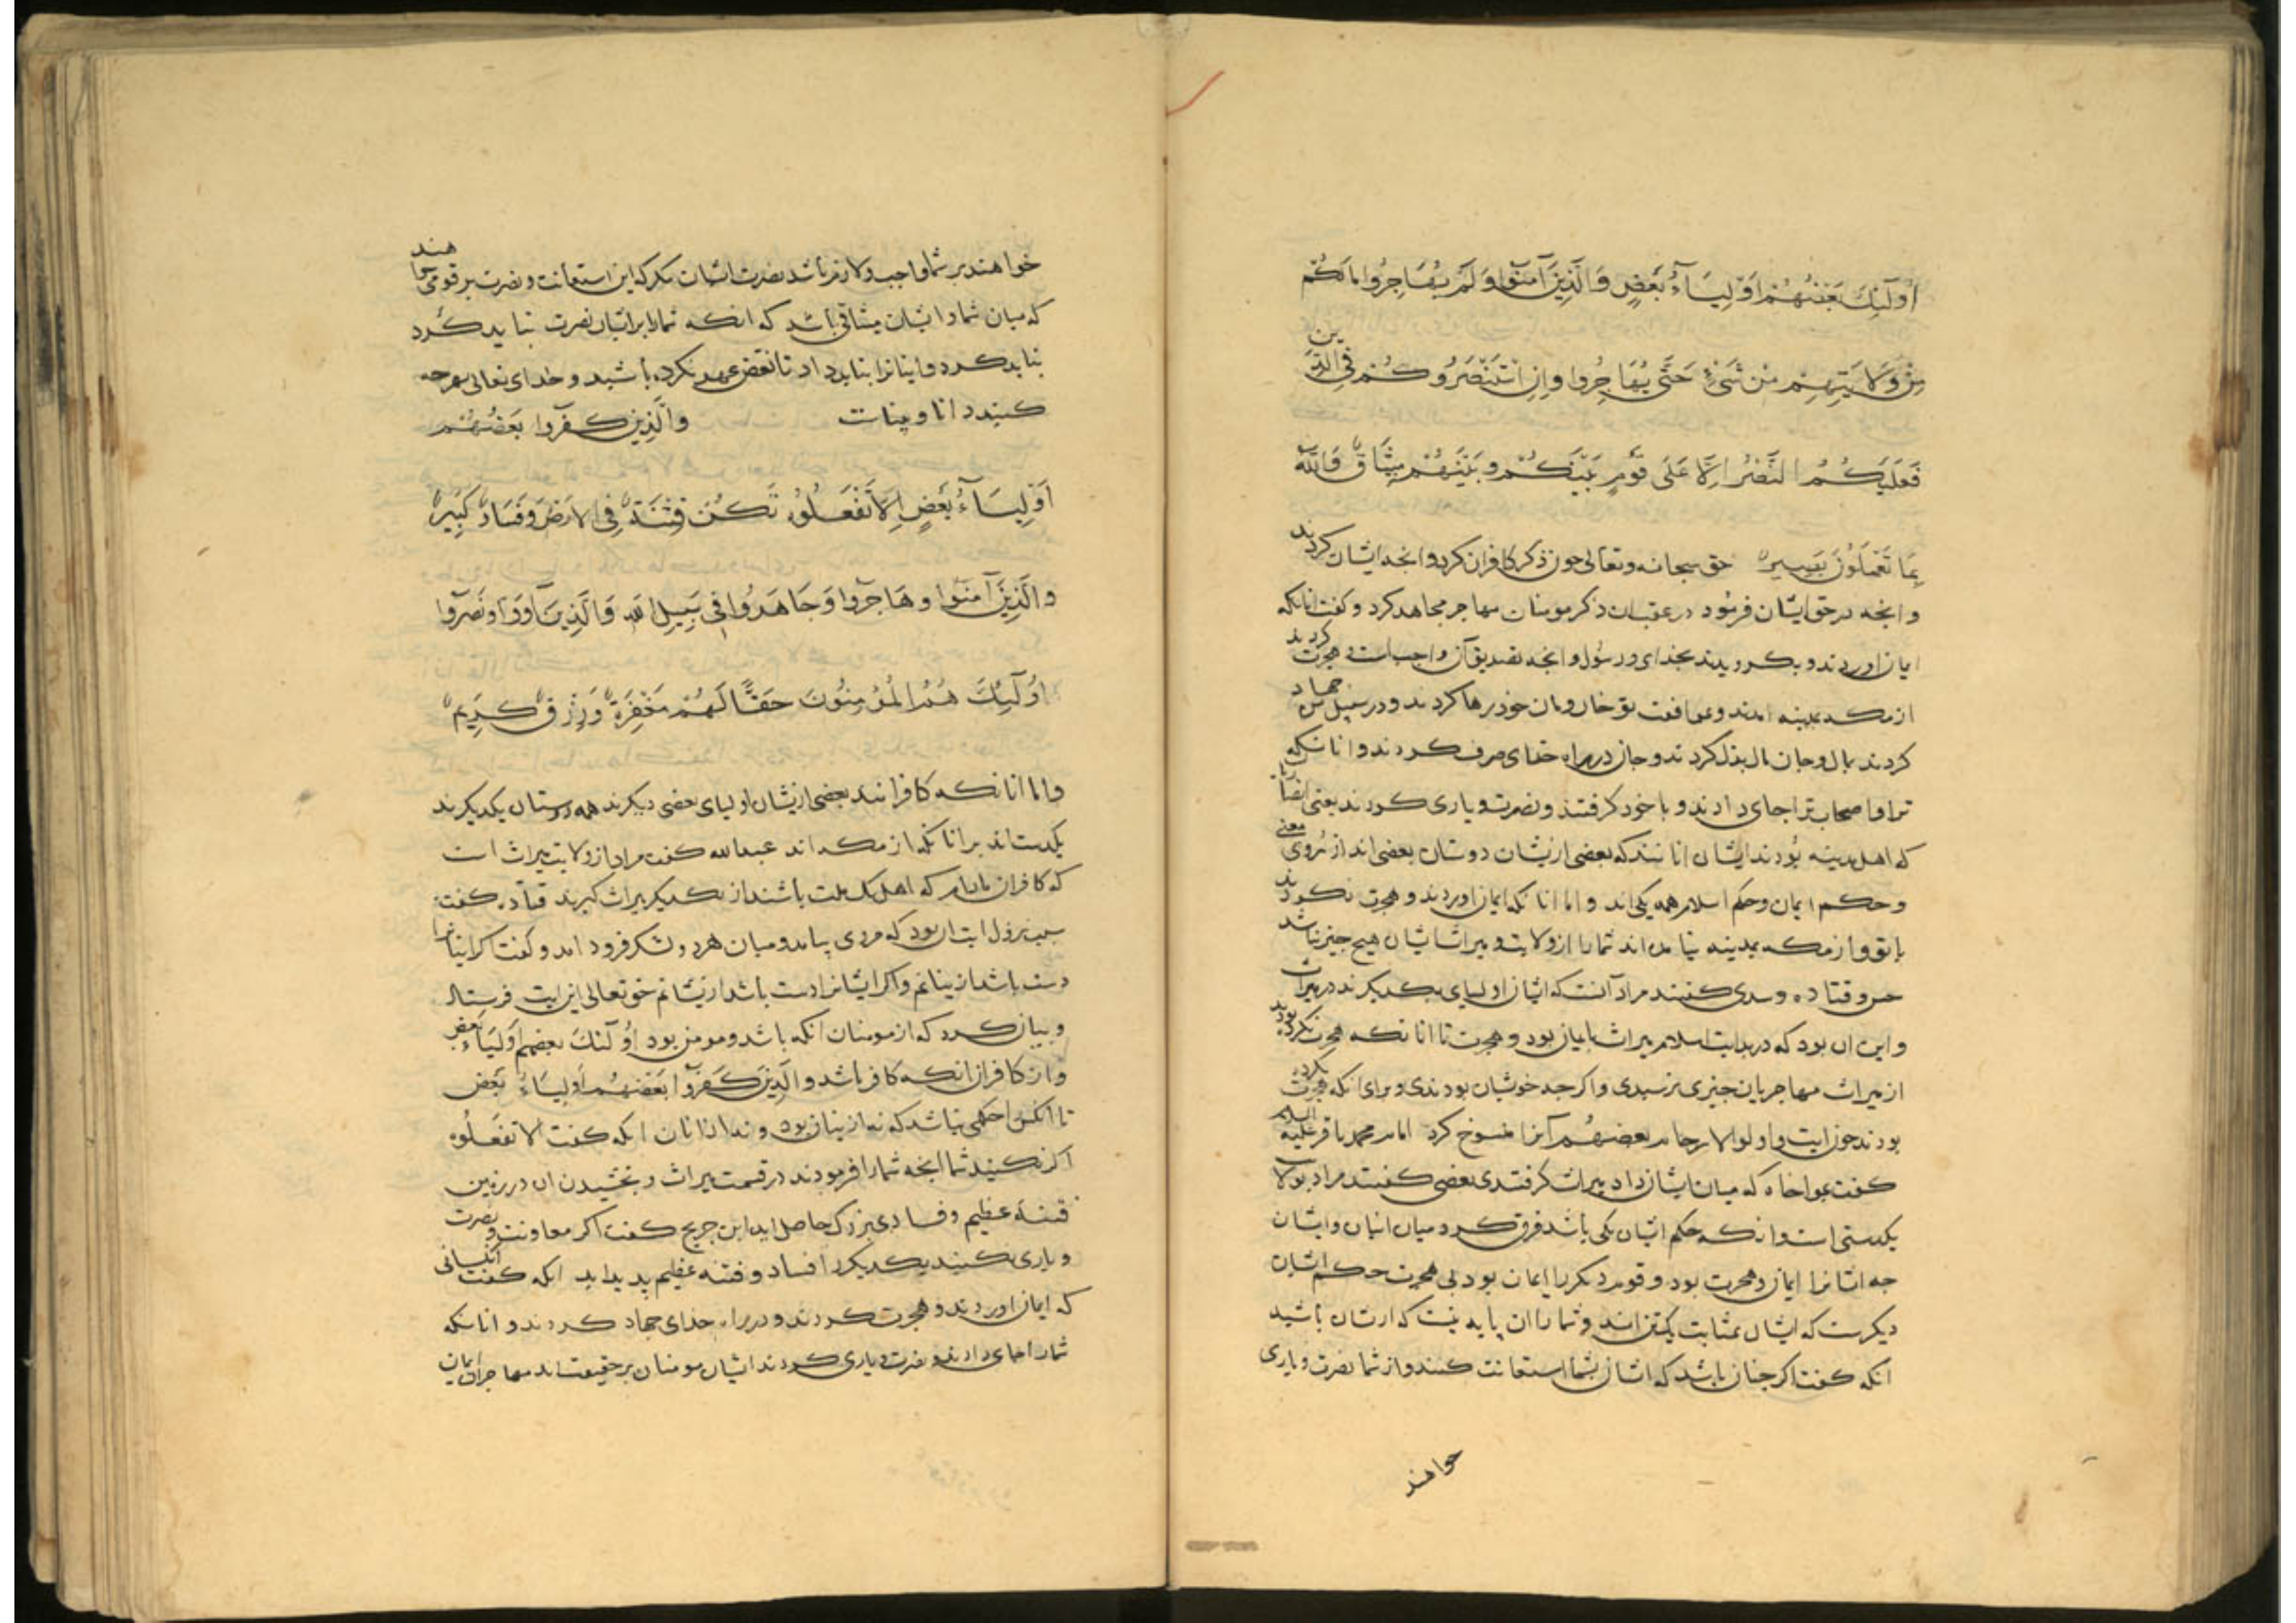 اُولَٓئِكَ بَعْضُهُمْ اَوْلِيَآءُ بَعْضٍ وَالَّذِينَ آمَنُوا وَلَمْ يُهَاجِرُوا مَا لَكُمْ
مِنْ وَلَايَتِهِمْ مِنْ شَيْءٍ حَتَّى يُهَاجِرُوا وَاِنِ اسْتَنْصَرُوكُمْ فِي الدِّينِ
فَعَلَيْكُمُ النَّصْرُ اِلَّا عَلَى قَوْمٍ بَيْنَكُمْ وَبَيْنَهُمْ مِيثَاقٌ وَاللَّهُ
بِمَا تَعْمَلُونَ بَصِيرٌ حق سبحانه وتعالی چون ذکر کافران کرد وانجه ایشان کردند
وانجه در حق ایشان فرمود در عقب ان ذکر مومنان مهاجر مجاهد کرد وکفت انانکه
ایمان اوردند وبکرویدند بخدای ورسول وانجه تصدیق آن واجب است وهجرت کردند
از مکه بمدینه امدند وبموافقت تو خان ومان خود رها کردند ودر سبیل من جهاد
کردند بمال وجان مال بذل کردند وجان در راه خدای صرف کردند وانانکه
ترا واصحاب ترا جای دادند وبا خود کرفتند ونصرت ویاری کردند یعنی انصار
که اهل مدینه بودند ایشان انانند که بعضی ازیشان دوستان بعضی اند از روی معنی
وحکم ایمان وحکم اسلام همه یکی اند واما انانکه ایمان اوردند وهجرت نکردند
با تو واز مکه بمدینه نیامده اند شما را از ولایت ومیراث ایشان هیچ جیز نباشد
حسن وقتاده وسدی کفتند مراد آنست که ایشان اولیای یکدیکرند در میراث
واین ان بود که در بدایت اسلام میراث بایمان بود وهجرت تا انانکه هجرت نکرده بودند
از میراث مهاجریان جیزی نرسیدی واکرجه خویشان بودندی وبرای انکه هجرت نکرده
بودند چون ایت واولوا الارحام بعضهم آنرا منسوخ کرد امام محمد باقر علیه السلام
کفت بمواخاه که میان ایشان داد میراث کرفتندی بعضی کفتند مراد بولا
یکدستی است وانکه حکم ایشان یکی باشد فرق کرد میان اینان وایشان
جه ایشانرا ایمان وهجرت بود وقوم دیکر را ایمان بود بی هجرت حکم ایشان
دیکرست که ایشان بمثابت یکتن اند وشما را ان پایه نیست که ازیشان باشید
انکه کفت اکر جنان باشد که ایشان بشما استعانت کنند واز شما نصرت ویاری
خواهند
خواهند بر شما واجب ولازم باشد نصرت ایشان مکر که این استعانت ونصرت بر قومی خواهند
که میان شما وایشان میثاقی باشد که انکه شما را بر ایشان نصرت نباید کرد
نباید کرد واینانرا نباید داد تا نقض عهد نکرده باشید وخدای تعالی بهرجه
کنید دانا وبیناست وَالَّذِينَ كَفَرُوا بَعْضُهُمْ
اَوْلِيَآءُ بَعْضٍ اِلَّا تَفْعَلُوهُ تَكُنْ فِتْنَةٌ فِي الْاَرْضِ وَفَسَادٌ كَبِيرٌ
وَالَّذِينَ آمَنُوا وَهَاجَرُوا وَجَاهَدُوا فِي سَبِيلِ اللهِ وَالَّذِينَ آوَوْا وَنَصَرُوا
اُولَٓئِكَ هُمُ الْمُؤْمِنُونَ حَقًّا لَهُمْ مَغْفِرَةٌ وَرِزْقٌ كَرِيمٌ
واما انانکه کافرانند بعضی ازیشان اولیای بعضی دیکرند همه دوستان یکدیکرند
یکدست اند بر انانکه از مکه اند عبدالله کفت مراد از ولایت میراث است
که کافران مادام که اهل یک ملت باشند از یکدیکر میراث کیرند قتاده کفت
سبب نزول ایت ان بود که مردی بیامد ومیان هر دو لشکر فرود امد وکفت اکر اینانرا
دست باشد ازینانم واکر ایشانرا دست باشد ازیشانم حق تعالی این ایت فرستاد
وبیان کرد که از مومنان انکه باشد ومومن بود اُولَٓئِكَ بعضهم اَوْلِيَآءُ بعض
واز کافران انکه کافر باشد والَّذِينَ كَفَرُوا بَعْضُهُمْ اَوْلِيَآءُ بَعْض
تا انکس را حکمی نباشد که نه ازینان بود ونه از انان انکه کفت الا تفعلوه
اکر نکنید شما انجه شما را فرمودند در قسمت میراث وبخشیدن ان در زمین
فتنهٔ عظیم وفسادی بزرک حاصل اید ابن جریج کفت اکر معاونت ونصرت
ویاری نکنید یکدیکر را فساد وفتنه عظیم پدید اید انکه کفت انکسانی
که ایمان اوردند وهجرت کردند ودر راه خدای جهاد کردند وانانکه
شما را جای دادند ونصرت ویاری کردند ایشان مومنان بر حقیقت اند مهاجران ایمان